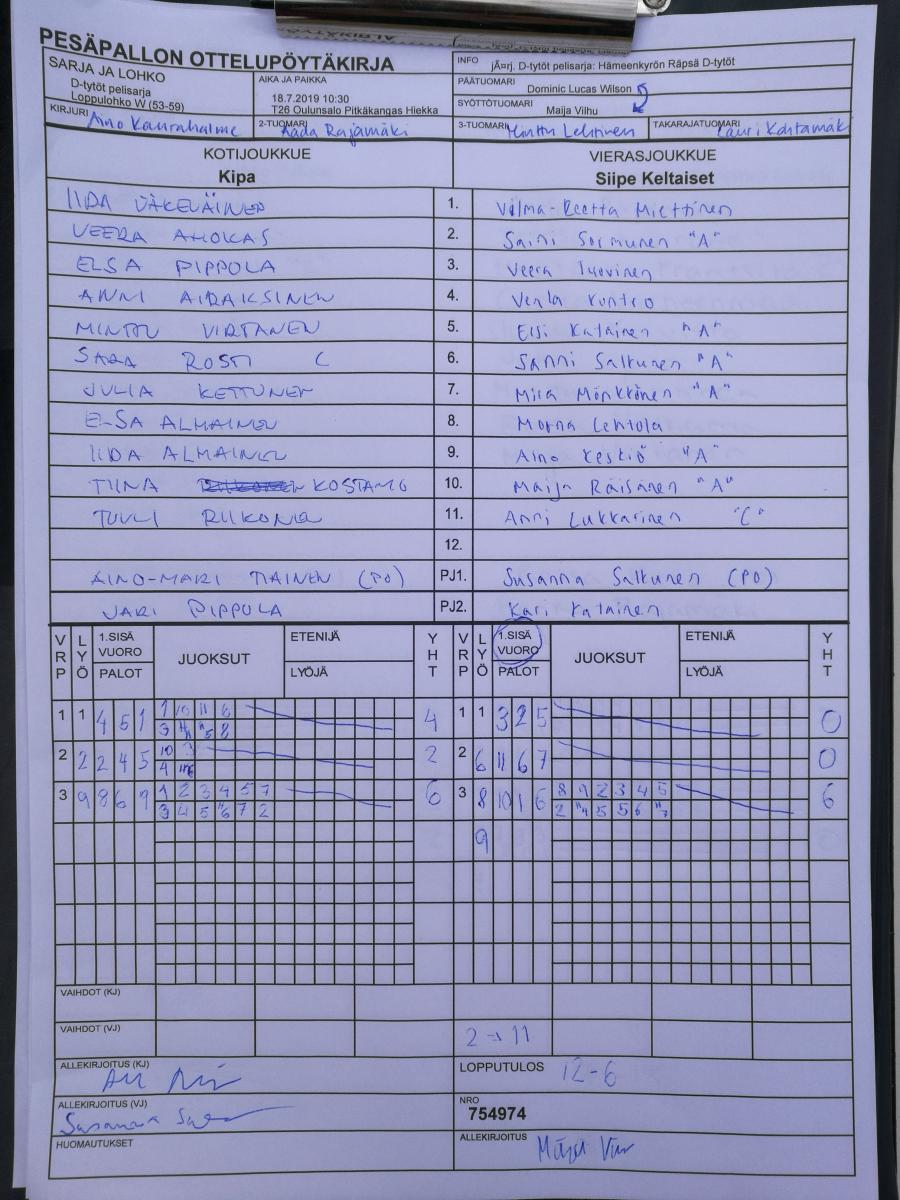 PESÄPALLON OTTELUPÖYTÄKIRJA
SARJA JA LOHKO
D-tytöt pelisarja
Loppulohko W (53-59)
AIKA JA PAIKKA
18.7.2019 10:30
T26 Oulunsalo Pitkäkangas Hiekka
INFO jÃ¤rj. D-tytöt pelisarja: Hämeenkyrön Räpsä D-tytöt
PÄÄTUOMARI Dominic Lucas Wilson
SYÖTTÖTUOMARI Maija Vilhu
KIRJURI Aino Kaurahalme
2-TUOMARI Aada Rajamäki
3-TUOMARI Minttu Lehtinen
TAKARAJATUOMARI Lauri Kohtamäki
KOTIJOUKKUE
Kipa
VIERASJOUKKUE
Siipe Keltaiset
IIDA VÄKEVÄINEN 1. Vilma-Reetta Miettinen
VEERA AHOKAS 2. Saini Sormunen "A"
ELSA PIPPOLA 3. Veera Tuovinen
ANNI AIRAKSINEN 4. Venla Kontro
MINTTU VIRTANEN 5. Essi Katainen "A"
SARA ROSTI C 6. Sanni Salkunen "A"
JULIA KETTUNEN 7. Miia Mönkkönen "A"
ELSA ALMAINEN 8. Moona Lehtola
IIDA ALMAINEN 9. Aino Keskiö "A"
TIINA KOSTAMO 10. Maija Räisänen "A"
TUULI RIIKONEN 11. Anni Lukkarinen "C"
12.
AINO-MARI TIAINEN (PO) PJ1. Susanna Salkunen (PO)
JARI PIPPOLA PJ2. Kari Katainen
VRP LYÖ 1.SISÄ VUORO PALOT JUOKSUT ETENIJÄ LYÖJÄ YHT VRP LYÖ 1.SISÄ VUORO PALOT JUOKSUT ETENIJÄ LYÖJÄ YHT
1 1 4 5 1 1 10 11 6 4 1 1 3 2 5 0
2 2 2 4 5 10 3 2 2 6 11 6 7 0
3 9 8 6 7 1 2 3 4 5 7 6 3 8 10 1 6 8 9 2 3 4 5 6
3 4 5 "6 7 2 2 "4 5 5 6 "7
9
VAIHDOT (KJ)
VAIHDOT (VJ) 2 → 11
ALLEKIRJOITUS (KJ)
LOPPUTULOS 12-6
ALLEKIRJOITUS (VJ)
NRO
754974
HUOMAUTUKSET
ALLEKIRJOITUS